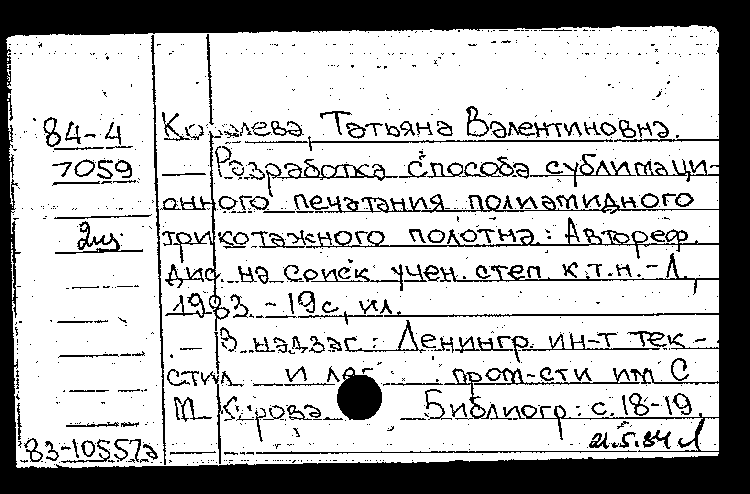 84-4
7059
2из
Королева, Татьяна Валентиновна.
— Разработка способа сублимаци-
онного печатания полиамидного
трикотажного полотна: Автореф.
дис. на соиск учен. степ к.т.н. - Л.,
1983. - 19с, ил.
— В надзаг: Ленингр. ин-т тек-
стил и лег пром-сти им С
М Кирова Библиогр: с. 18-19.
83-10557а
21.5.84 Л